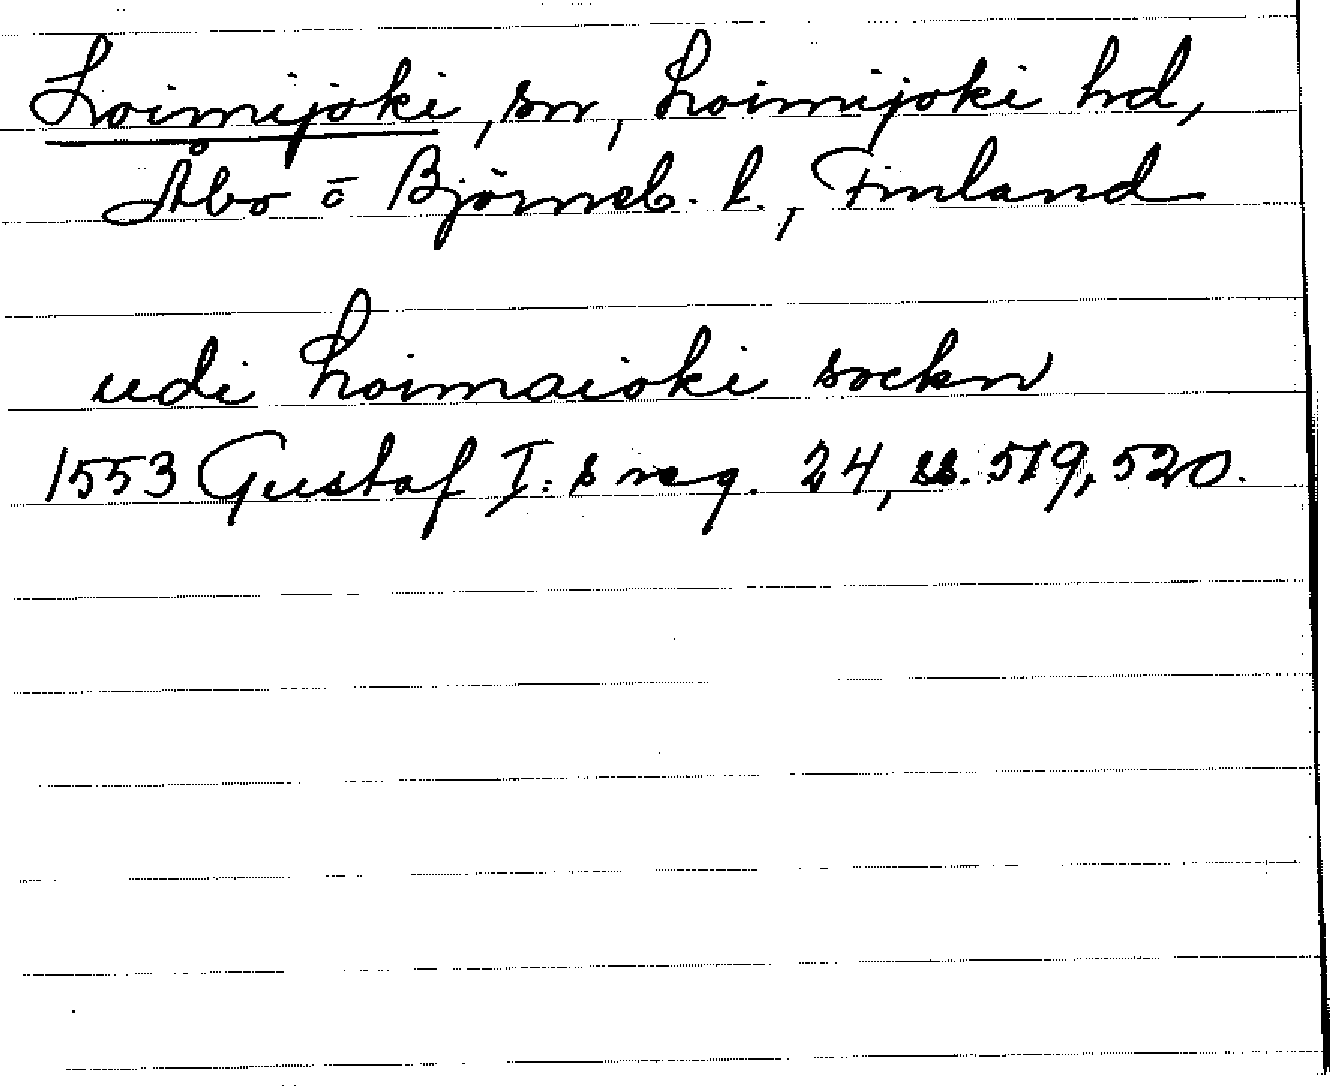 Loimijoki, sn, Loimijoki hd,
Åbo o Björneb. l., Finland
udi Loimaioki sockn
1553 Gustaf I:s reg. 24, ss. 519, 520.